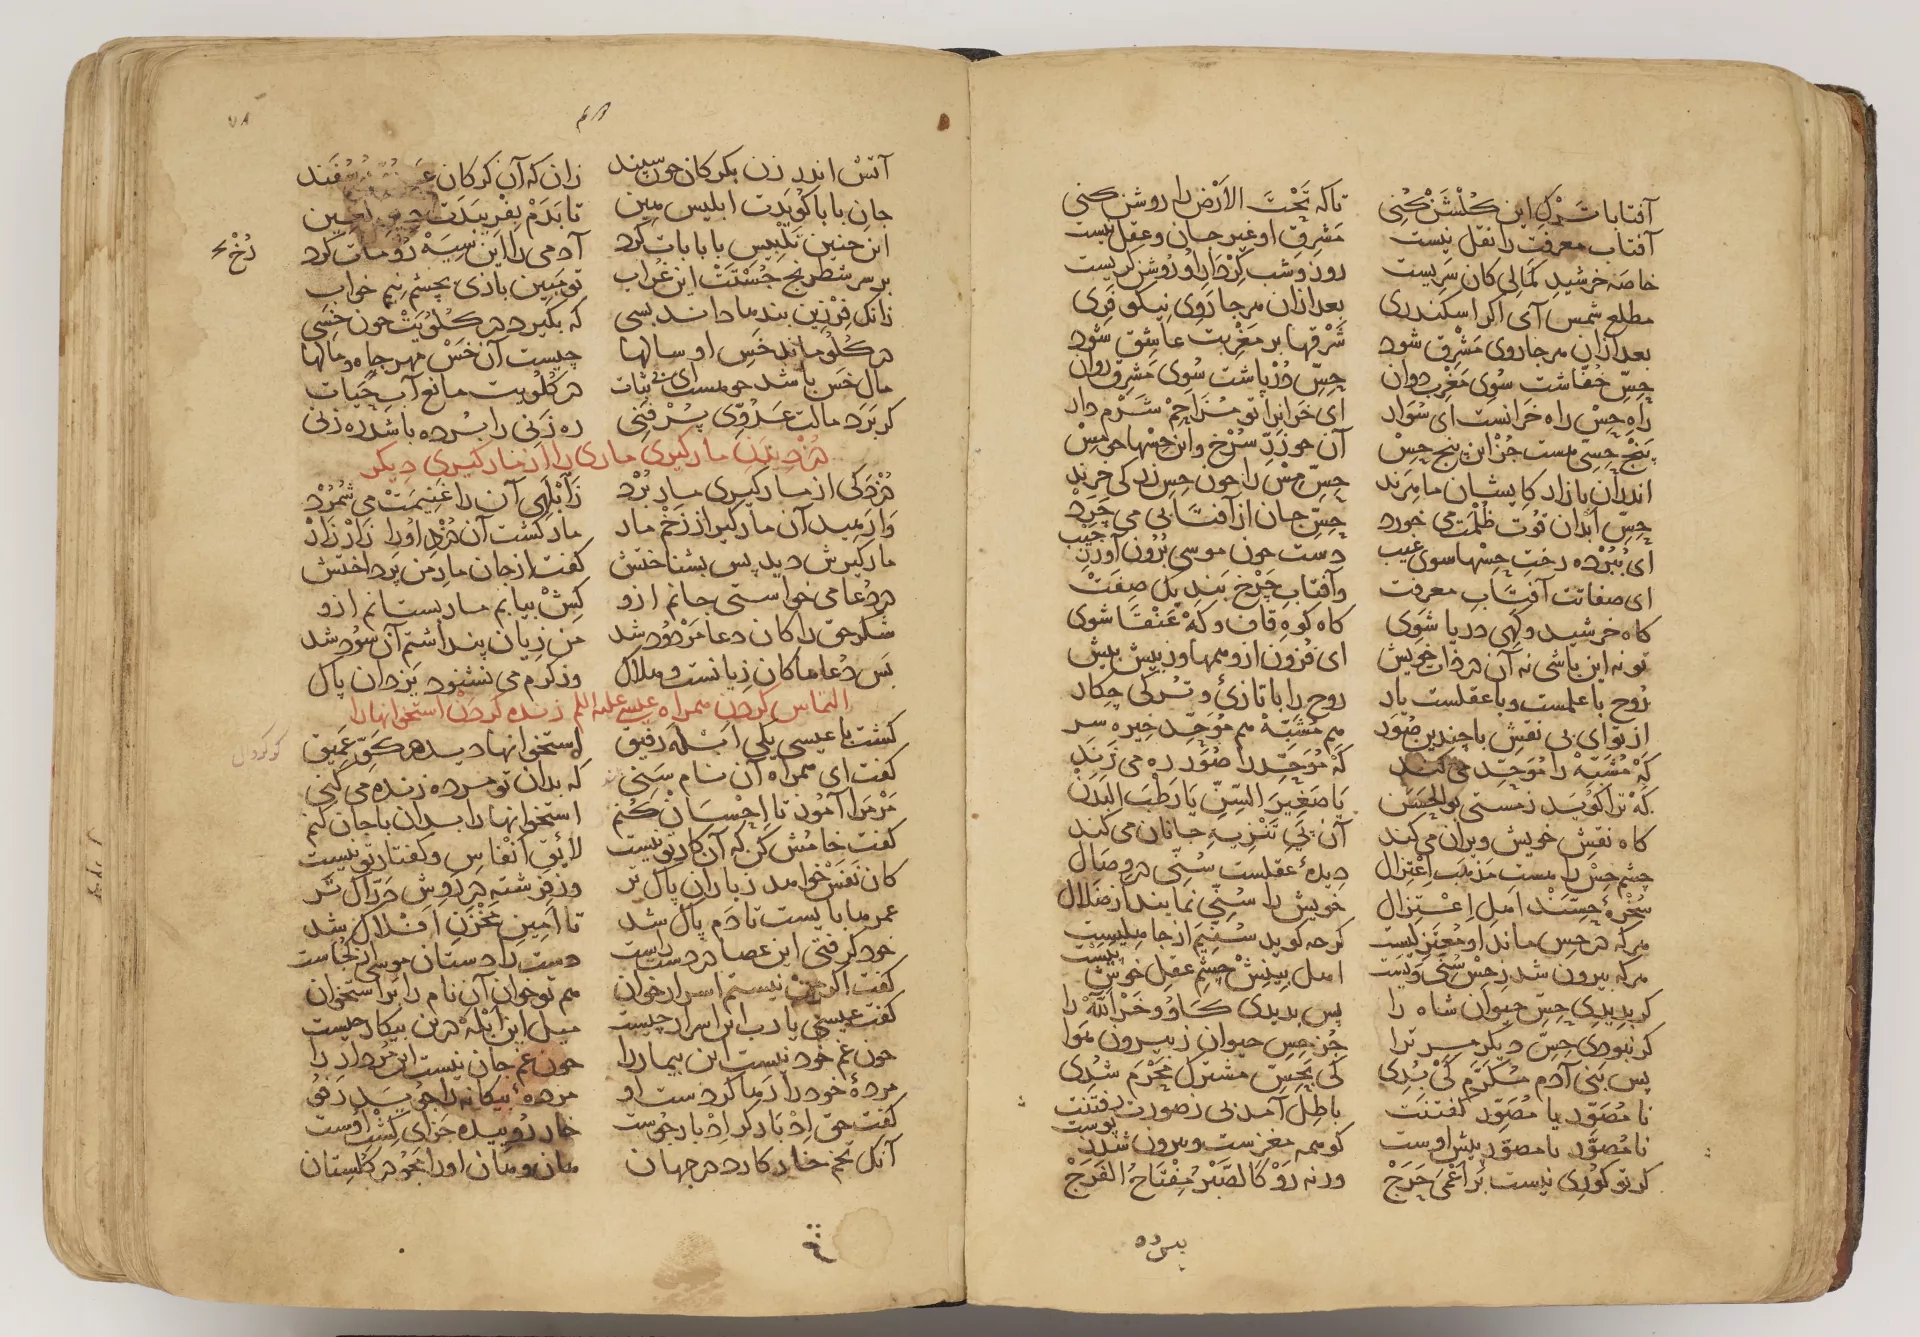 آفتابا ترک این گلشن کنی تاکه تحت الارض را روشن کنی
آفتاب معرفت را نقل نیست مشرق او غیر جان و عقل نیست
خاصه خرشید کمالی کان سریست روز و شب کردار او روشن گریست
مطلع شمس آی اگر اسکندری بعد ازان هر جا روی نیکو فری
بعد ازان هر جا روی مشرق شود شرقها بر مغربت عاشق شود
حس خفاشت سوی مغرب دوان حس درپاشت سوی مشرق روان
راه حس راه خرانست ای سوار ای خرانرا تو مزاحم شرم دار
پنج حسی هست جز این پنج حس آن جو زر سرخ و این حسها جو مس
اندران بازار کایشان ماهرند حس مس را جون حس زر کی خرند
حس ابدان قوت ظلمت می خورد حس جان از آفتابی می چرد
ای ببرده رخت حسها سوی غیب دست جون موسی برون آور ز جیب
ای صفاتت آفتاب معرفت وآفتاب چرخ بند یک صفت
کاه خرشید و کهی دریا شوی کاه کوه قاف و که عنقا شوی
تو نه این باشی نه آن در ذات خویش ای فزون از وهمها وز بیش بیش
روح با علمست و با عقلست یار روح را با تازی و ترکی چکار
از تو ای بی نقش با چندین صور هم مشبه هم موحد خیره سر
که مشبه را موحد می کند که موحد را صور ره می زند
که ترا کوید ز مستی بوالحسن یا صغیر السن یا رطب البدن
کاه نقش خویش ویران می کند آن پی تنزیه جانان می کند
چشم حس را هست مذهب اعتزال دیده عقلست سنی در وصال
سخره حسند اهل اعتزال خویش را سنی نمایند از ضلال
هر که در حس ماند او معتزلیست کرجه کوید سنیم از جاهلیست
هر که بیرون شد ز حس سنی ویست اهل بینش چشم عقل خوش پیست
کر بدیدی حس حیوان شاه را پس بدیدی کاو و خر الله را
کر نبودی حس دیکر مر ترا جز حس حیوان ز بیرون هوا
پس بنی آدم مکرم کی بدی کی بحس مشترک محرم شدی
نا مصور یا مصور گفتنت باطل آمد بی ز صورت رفتنت
نا مصور یا مصور پیش اوست کو همه مغزست و بیرون شد ز پوست
کر تو کوری نیست بر اعمی حرج ورنه رو کالصبر مفتاح الفرج
پرده
آتش اندر زن بکرکان جون سپند زان که آن کرکان
جان بابا کویدت ابلیس هین تا بدم بفریبدت دیو لعین
این جنین تلبیس با بابات کرد آدمی را این سیه رو مات کرد
رخ
بر سر شطرنج جستست این غراب تو مبین بازی بچشم نیم خواب
زانک فرزین بندها داند بسی که بکیرد در کلویت جون خسی
در کلو ماند خس او سالها چیست آن خس مهر جاه و مالها
مال خس باشد جو هست ای بی ثبات در کلویت مانع آب حیات
کر برد مالت عدوی پر فنی ره زنی را برده باشد ره زنی
دزدیدن مارکیری ماری را از مارکیری دیکر
دزدکی از مارکیری مار برد ز ابلهی آن را غنیمت می شمرد
وارهید آن مارکیر از زخم مار مار کشت آن دزد او را زار زار
مارکیرش دید پس بشناختش کفت از جان مار من پرداختش
در دعا می خواستی جانم ازو کش بیابم مار بستانم ازو
شکر حق را کان دعا مردود شد من زیان پنداشتم آن سود شد
بس دعاها کان زیانست و هلاک وز کرم می نشنود یزدان پاک
التماس کردن همراه عیسی علیه السلم زنده کردن استخوانها را
کشت با عیسی یکی ابله رفیق استخوانها دید در کوی عمیق
کفت ای همراه آن نام سنی که بدان تو مرده زنده می کنی
مر مرا آموز تا احسان کنم استخوانها را بدان با جان کنم
کفت خامش کن که آن کار تو نیست لایق انفاس و کفتار تو نیست
کان نفس خواهد ز باران پاک تر وز فرشته در روش درّاک تر
عمرها بایست تا دم پاک شد تا امین مخزن افلاک شد
خود کرفتی این عصا در دست راست دست را دستان موسی از کجاست
کفت اکر من نیستم اسرار خوان هم تو خوان آن نام را بر استخوان
کفت عیسی یا رب این اسرار چیست میل این ابله درین بیکار چیست
جون غم خود نیست این بیمار را جون غم جان نیست این مردار را
مرده خود را رها کردست او مرده بیکانه را جوید رفو
کفت حق ادبار کر ادبار جوست خار روییده جزای کشت اوست
آنک تخم خار کارد در جهان هان و هان او را مجو در کلستان